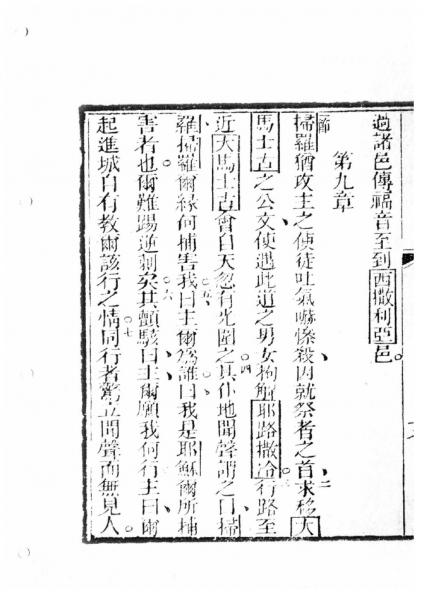 過諸邑傳福音至到西撒利亞邑。
第九章
節掃羅猶攻主之使徒吐氣嚇愫殺因就祭者之首求移大
馬士古之公文使遇此道之男女拘解耶路撒冷行路至
近大馬士古會自天忽有光圍之其仆地聞聲謂之曰掃
羅掃羅爾緣何捕害我曰主爾為誰曰我是耶穌爾所捕
害者也爾難踢逆刺矣其顫駭曰主爾願我何行主曰爾
起進城自有教爾該行之情同行者驚立聞聲而無見人